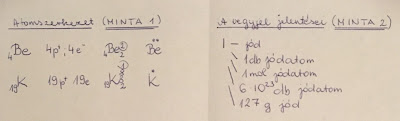 Atomszerkezet (MINTA 1)
₄Be 4p⁺; 4e⁻ ₄Be Be
₁₉K 19p⁺ 19e ₁₉K K
A vegyjel jelentései (MINTA 2)
I – jód
1 db jódatom
1 mol jódatom
6 10²³ db jódatom
127 g jód